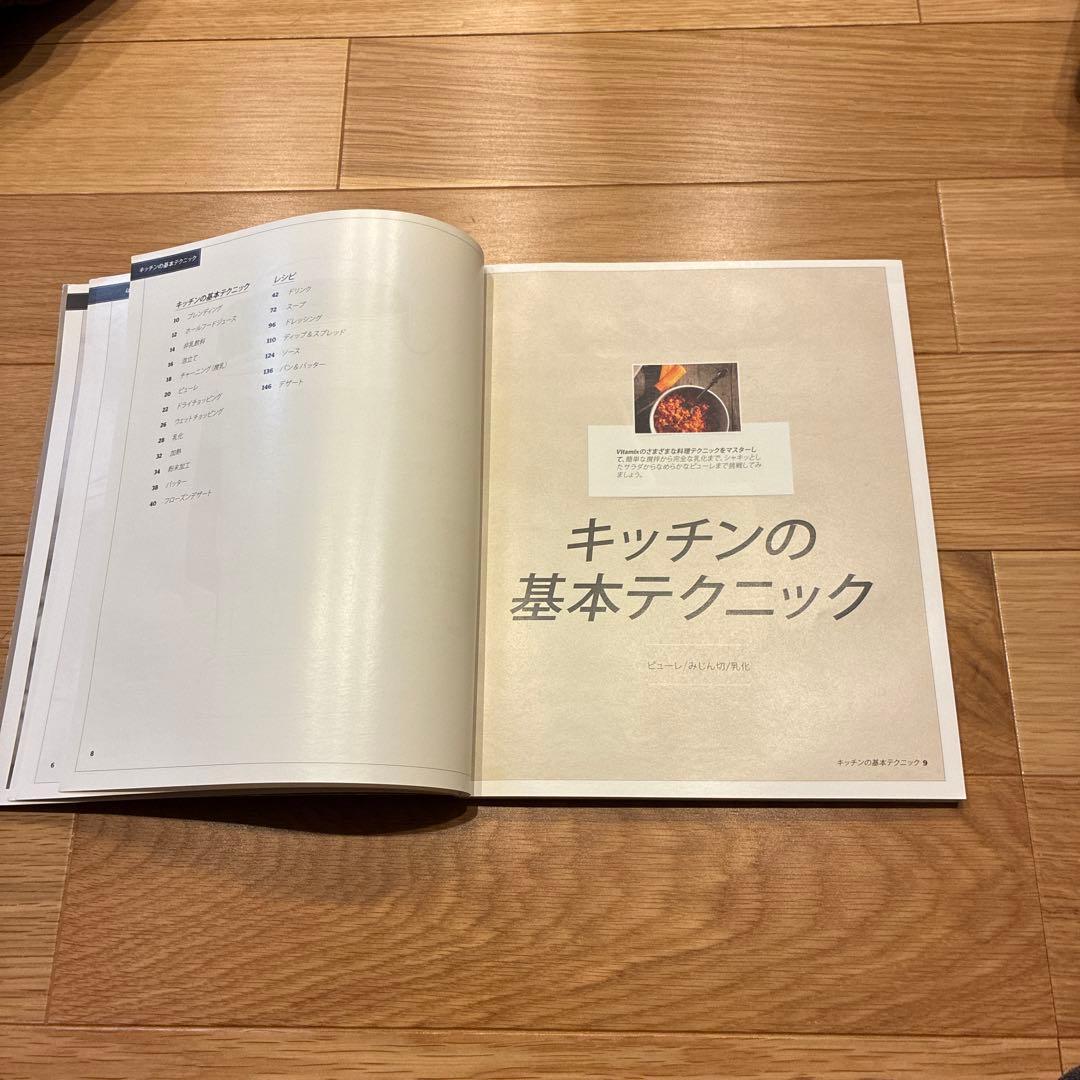 キッチンの基本テクニック
キッチンの基本テクニック
10 ブレンディング
12 ホールフードジュース
14 非乳飲料
16 泡立て
18 チャーニング(攪乳)
20 ピューレ
22 ドライチョッピング
26 ウェットチョッピング
28 乳化
32 加熱
34 粉末加工
38 バッター
40 フローズンデザート
レシピ
42 ドリンク
72 スープ
96 ドレッシング
110 ディップ&スプレッド
124 ソース
136 パン&バッター
146 デザート
8
6
Vitamixのさまざまな料理テクニックをマスターし
て、簡単な攪拌から完全な乳化まで、シャキッとし
たサラダからなめらかなピューレまで挑戦してみ
ましょう。
キッチンの
基本テクニック
ピューレ/みじん切/乳化
キッチンの基本テクニック 9